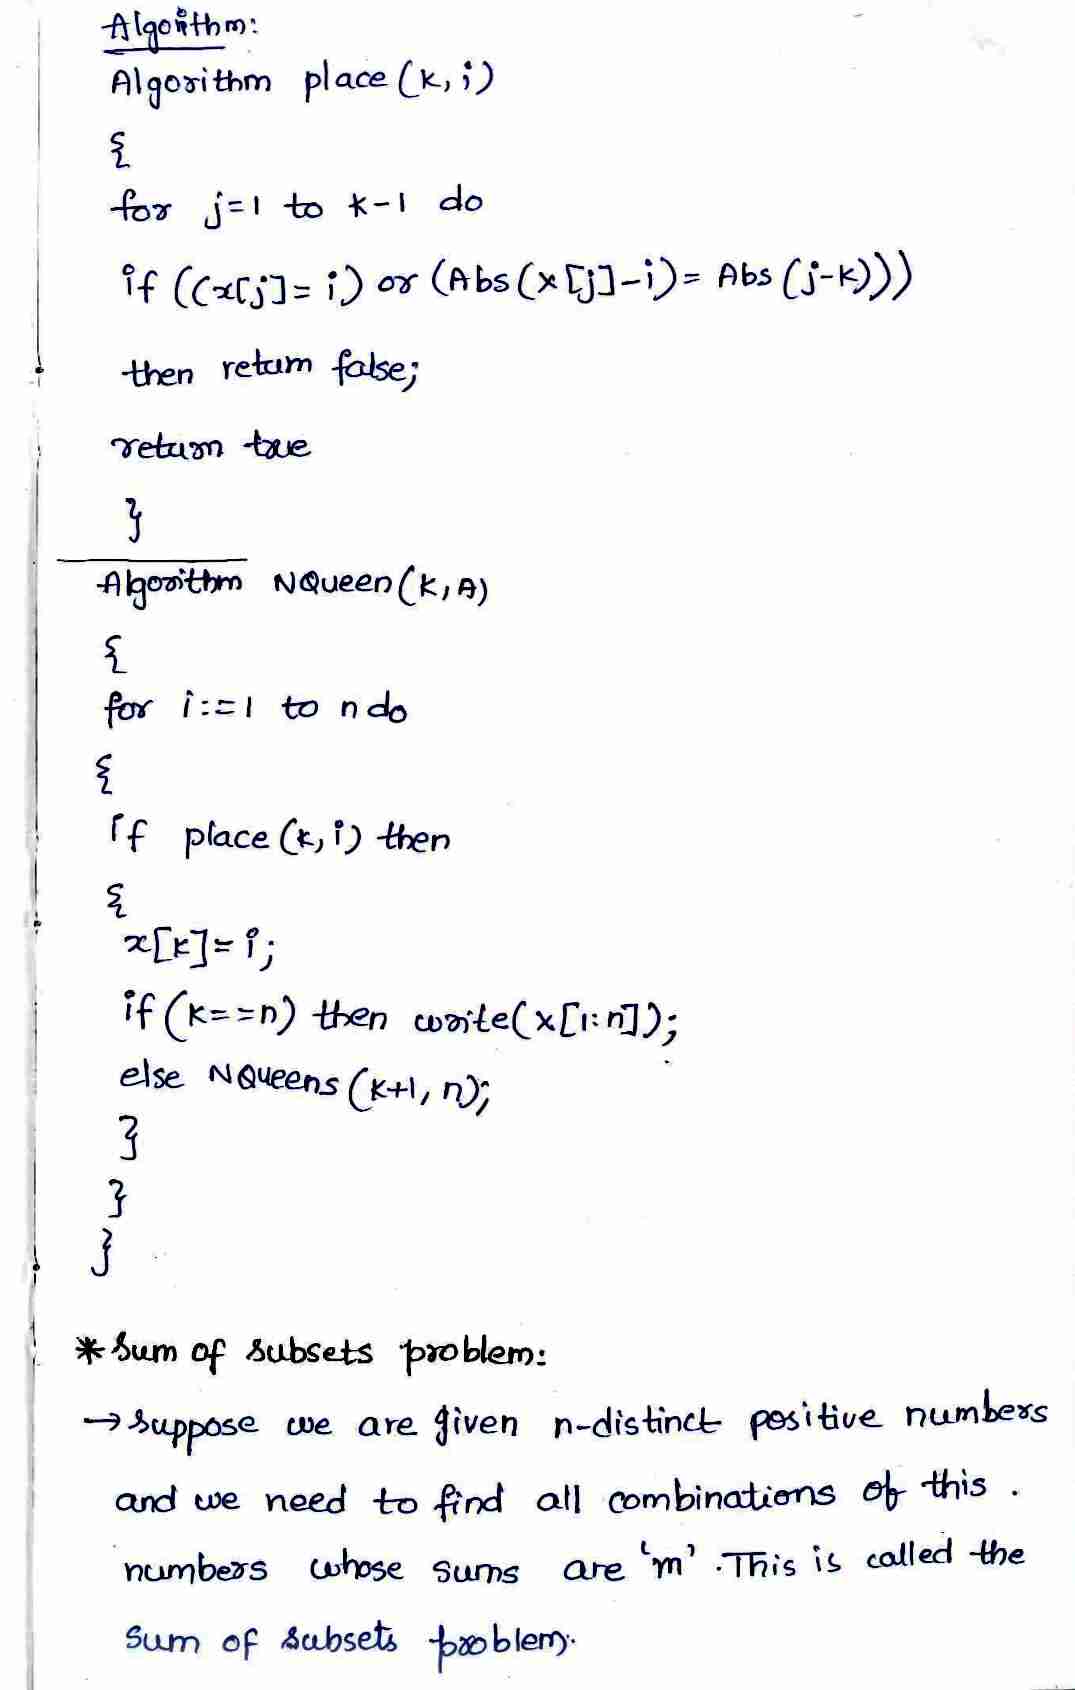 Algorithm:
Algorithm place (k, i)
{
for j=1 to k-1 do
if ((x[j]= i) or (Abs (x [j]-i)= Abs (j-k)))
then return false;
return true
}
Algorithm NQueen (k, A)
{
for i:=1 to n do
{
if place (k, i) then
{
x[k]= i;
if (k==n) then write(x[1:n]);
else NQueens (k+1, n);
}
}
}
* Sum of subsets problem:
→ Suppose we are given n-distinct positive numbers
and we need to find all combinations of this .
numbers whose sums are 'm' .This is called the
sum of subsets problem.